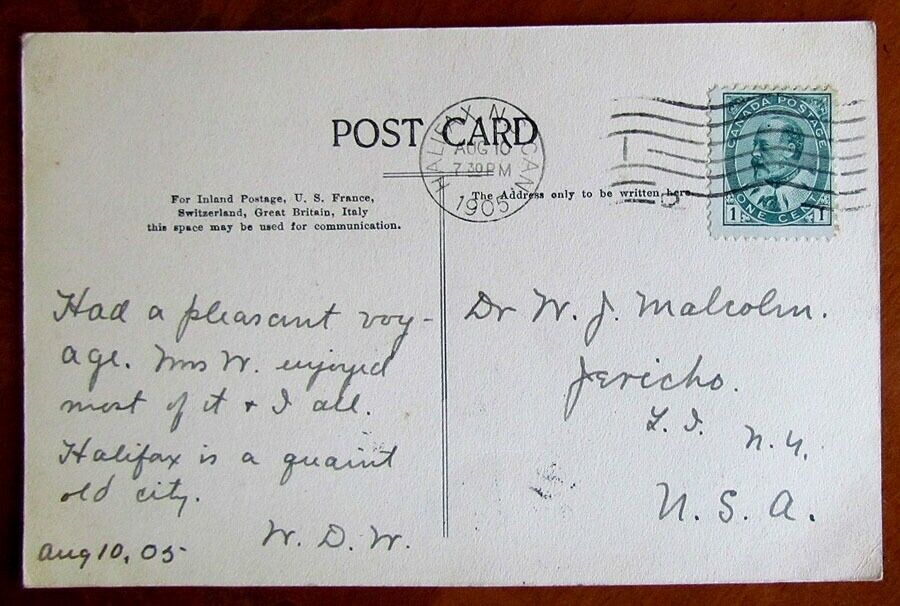 POST CARD
HALIFAX N.S. CAN.
AUG 10
7 30 PM
1905
CANADA POSTAGE
1 ONE CENT 1
For Inland Postage, U. S. France,
Switzerland, Great Britain, Italy
this space may be used for communication.
The Address only to be written here
Had a pleasant voy-
age. Mrs W. enjoyed
most of it & I all.
Halifax is a quaint
old city.
W. D. W.
Aug 10, 05
Dr W. J. Malcolm.
Jericho.
L. I. N. Y.
U. S. A.